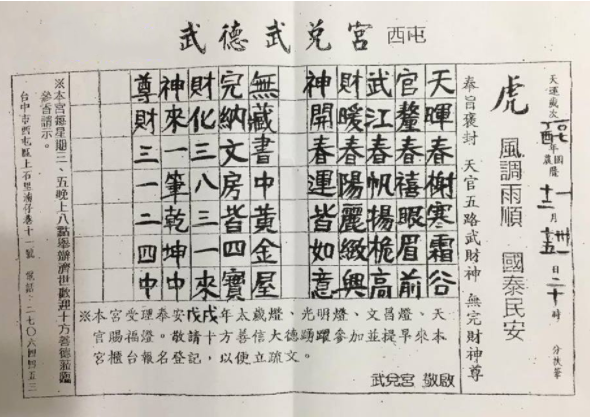 武德武兌宮西屯
天運歲次丁酉年國曆一月卅一日二十時 分扶筆
農 十二 十五
虎 風調雨順 國泰民安
奉旨褒封 天官五路武財神 無完財神尊
天暉春榭寒霜谷
官鰲春禧眼眉前
武江春帆揚桅高
財暖春陽麗緻興
神開春運皆如意
無藏書中黃金屋
完納文房皆四寶
財化三八三一來
神來一筆乾坤中
尊財三一二四中
※本宮受理奉安戊戌年太歲燈、光明燈、文昌燈、天
官賜福燈。敬請十方善信大德踴躍參加並提早來本
宮櫃台報名登記,以便立疏文。
武兌宮 敬啟
※本宮每星期二、五晚上八點舉辦濟世歡迎十方善德蒞臨
參香請示。
台中市西屯區上石里湳仔巷十一號 電話:二七〇六四四五三